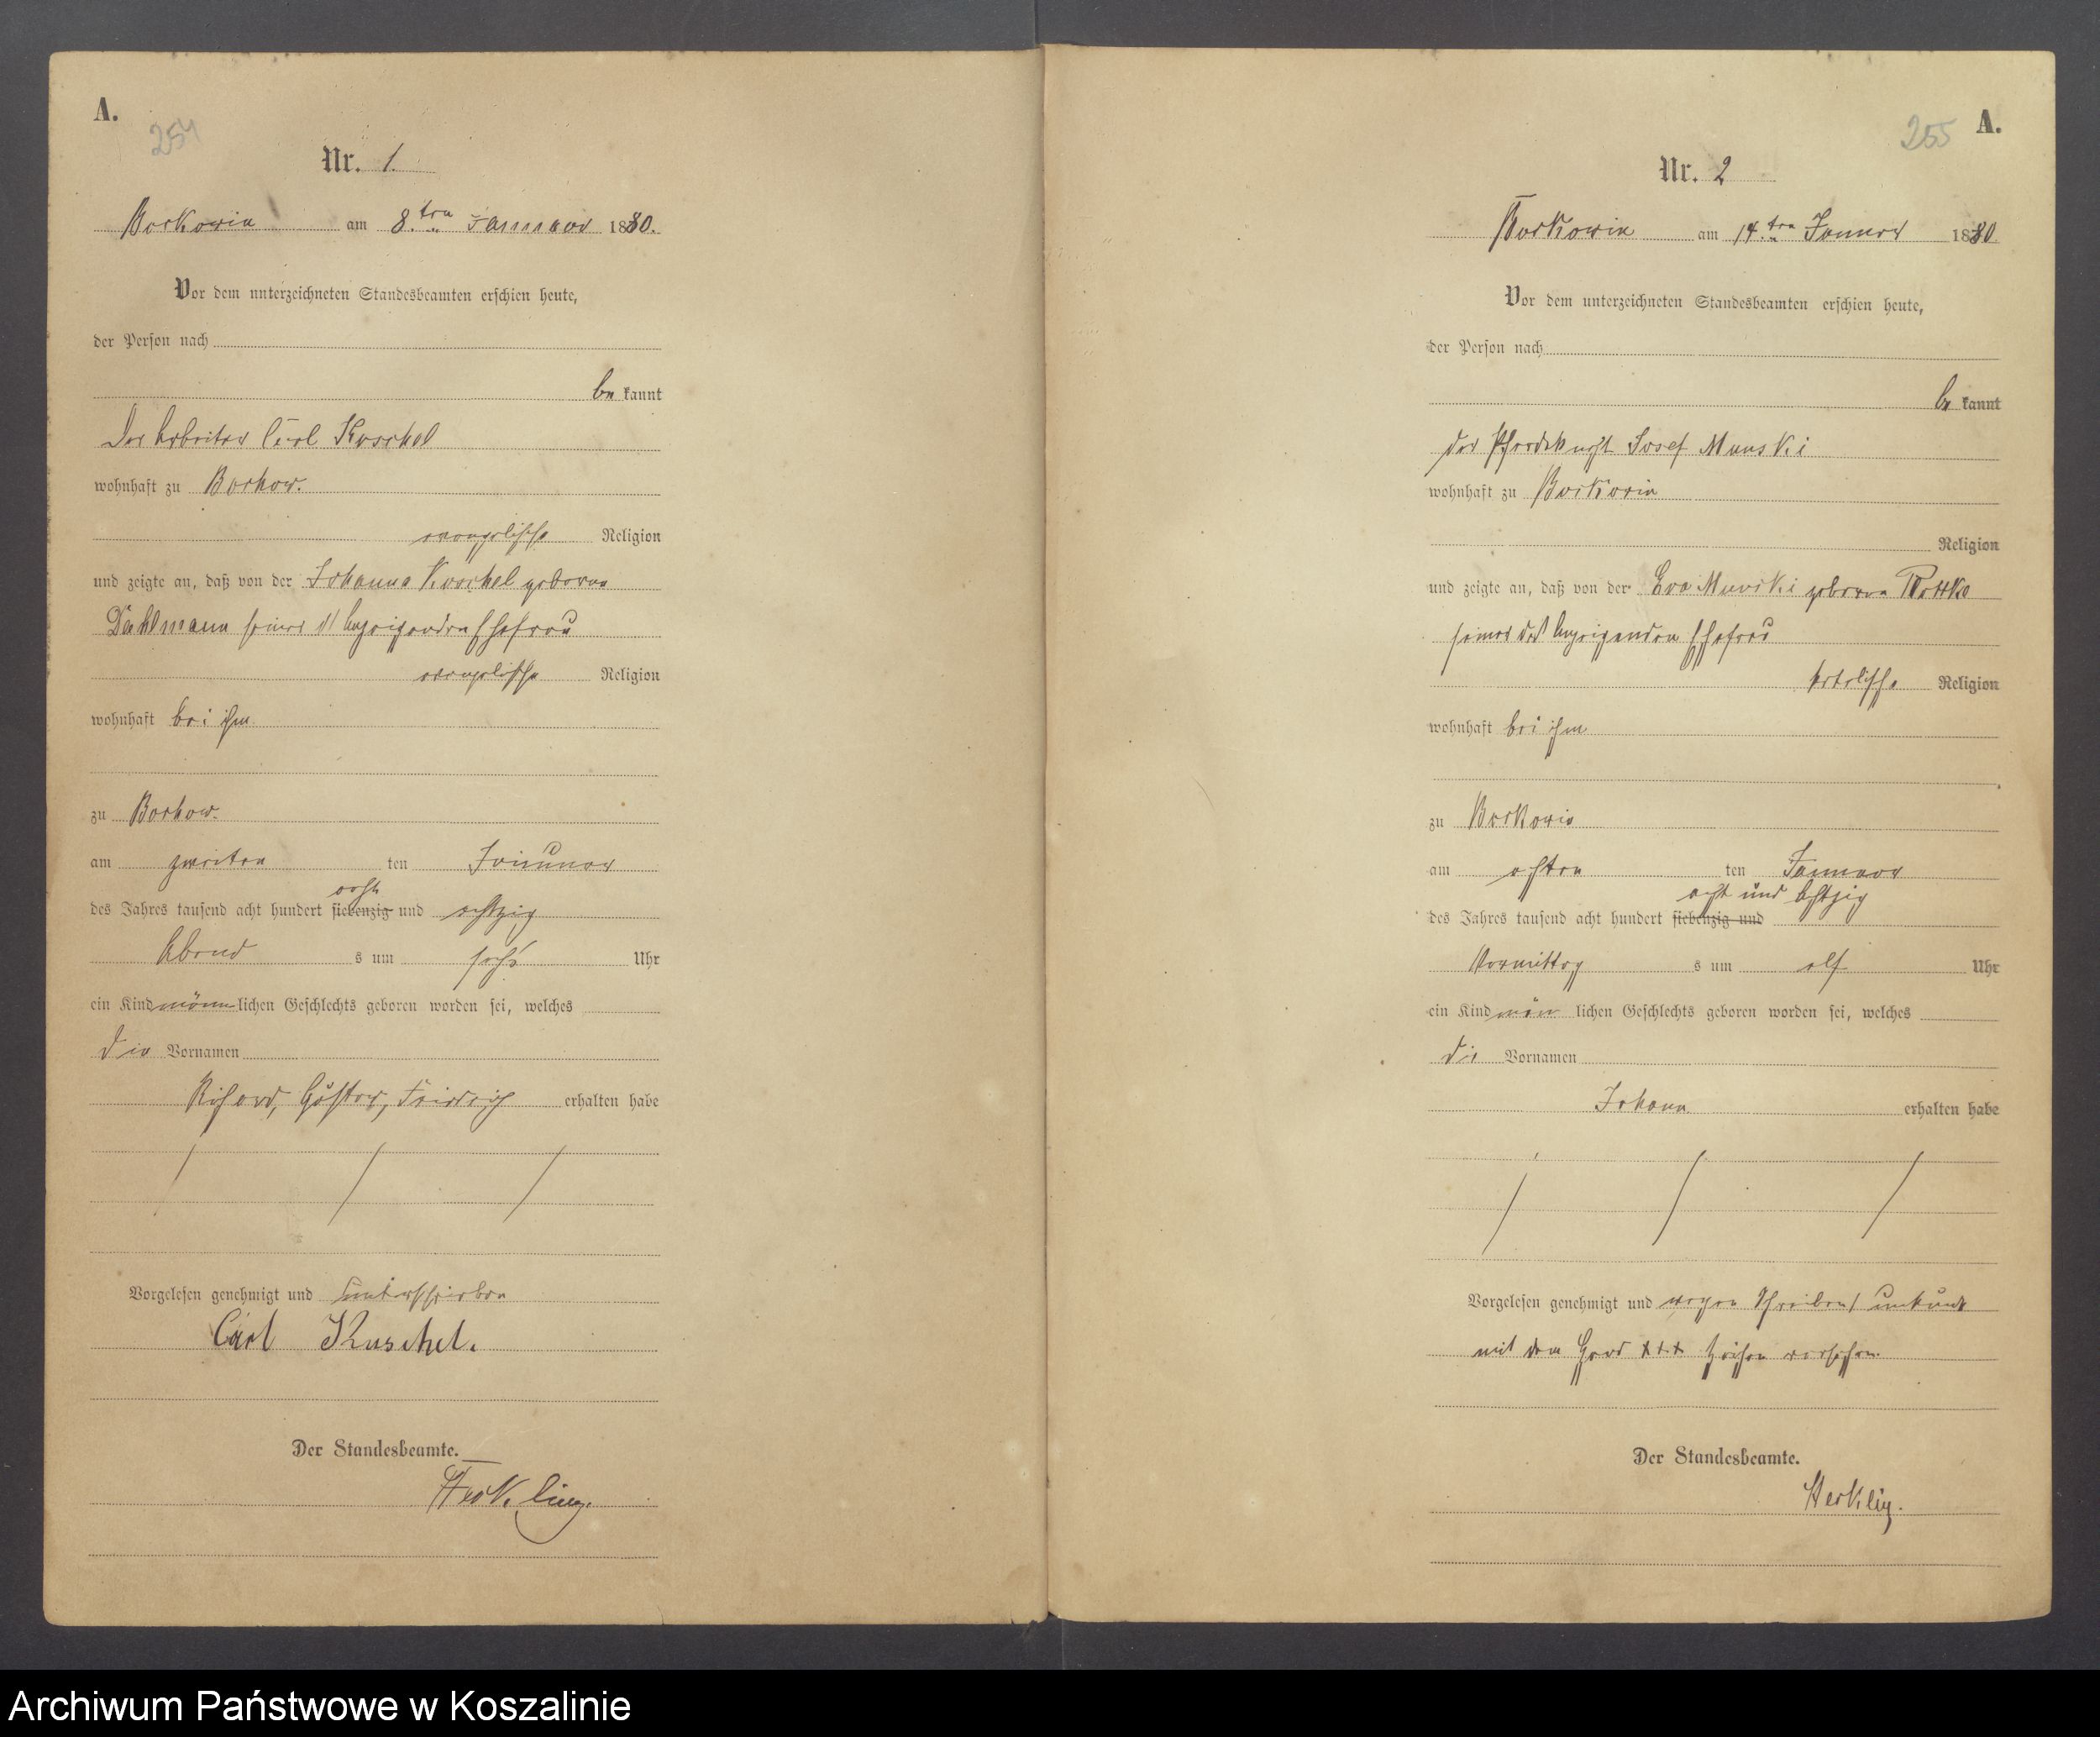 A.
254
Nr. 1.
Borkowin am 8.ten Januar 1880.
Vor dem unterzeichneten Standesbeamten erschien heute,
der Person nach
be kannt
Der Arbeiter Carl Kuschel
wohnhaft zu Borkow.
evangelische Religion
und zeigte an, daß von der Johanna Kuschel geborne
Dahlmann seiner des Anzeigenden Ehefrau
evangelische Religion
wohnhaft bei ihm
zu Borkow.
am zweiten ten Januar
acht
des Jahres tausend acht hundert siebenzig und achtzig
Abend s um sechs Uhr
ein Kind männ lichen Geschlechts geboren worden sei, welches
die Vornamen
Richard, Gustav, Friedrich erhalten habe
Vorgelesen genehmigt und unterschrieben
Carl Kuschel.
Der Standesbeamte.
Herkling.
255 A.
Nr. 2
Borkowin am 14.ten Januar 1880
Vor dem unterzeichneten Standesbeamten erschien heute,
der Person nach
be kannt
der Pferdeknecht Josef Munski
wohnhaft zu Borkowin
Religion
und zeigte an, daß von der Eva Munski geborne
seiner des Anzeigenden Ehefrau
katolische Religion
wohnhaft bei ihm
zu Borkowin
am achten ten Januar
acht und achtzig
des Jahres tausend acht hundert siebenzig und
Vormittag s um elf Uhr
ein Kind män lichen Geschlechts geboren worden sei, welches
die Vornamen
Johann erhalten habe
Vorgelesen genehmigt und wegen Schreibens unkunde
mit dem Hand +++ Zeichen versehen.
Der Standesbeamte.
Herkling.
Archiwum Państwowe w Koszalinie